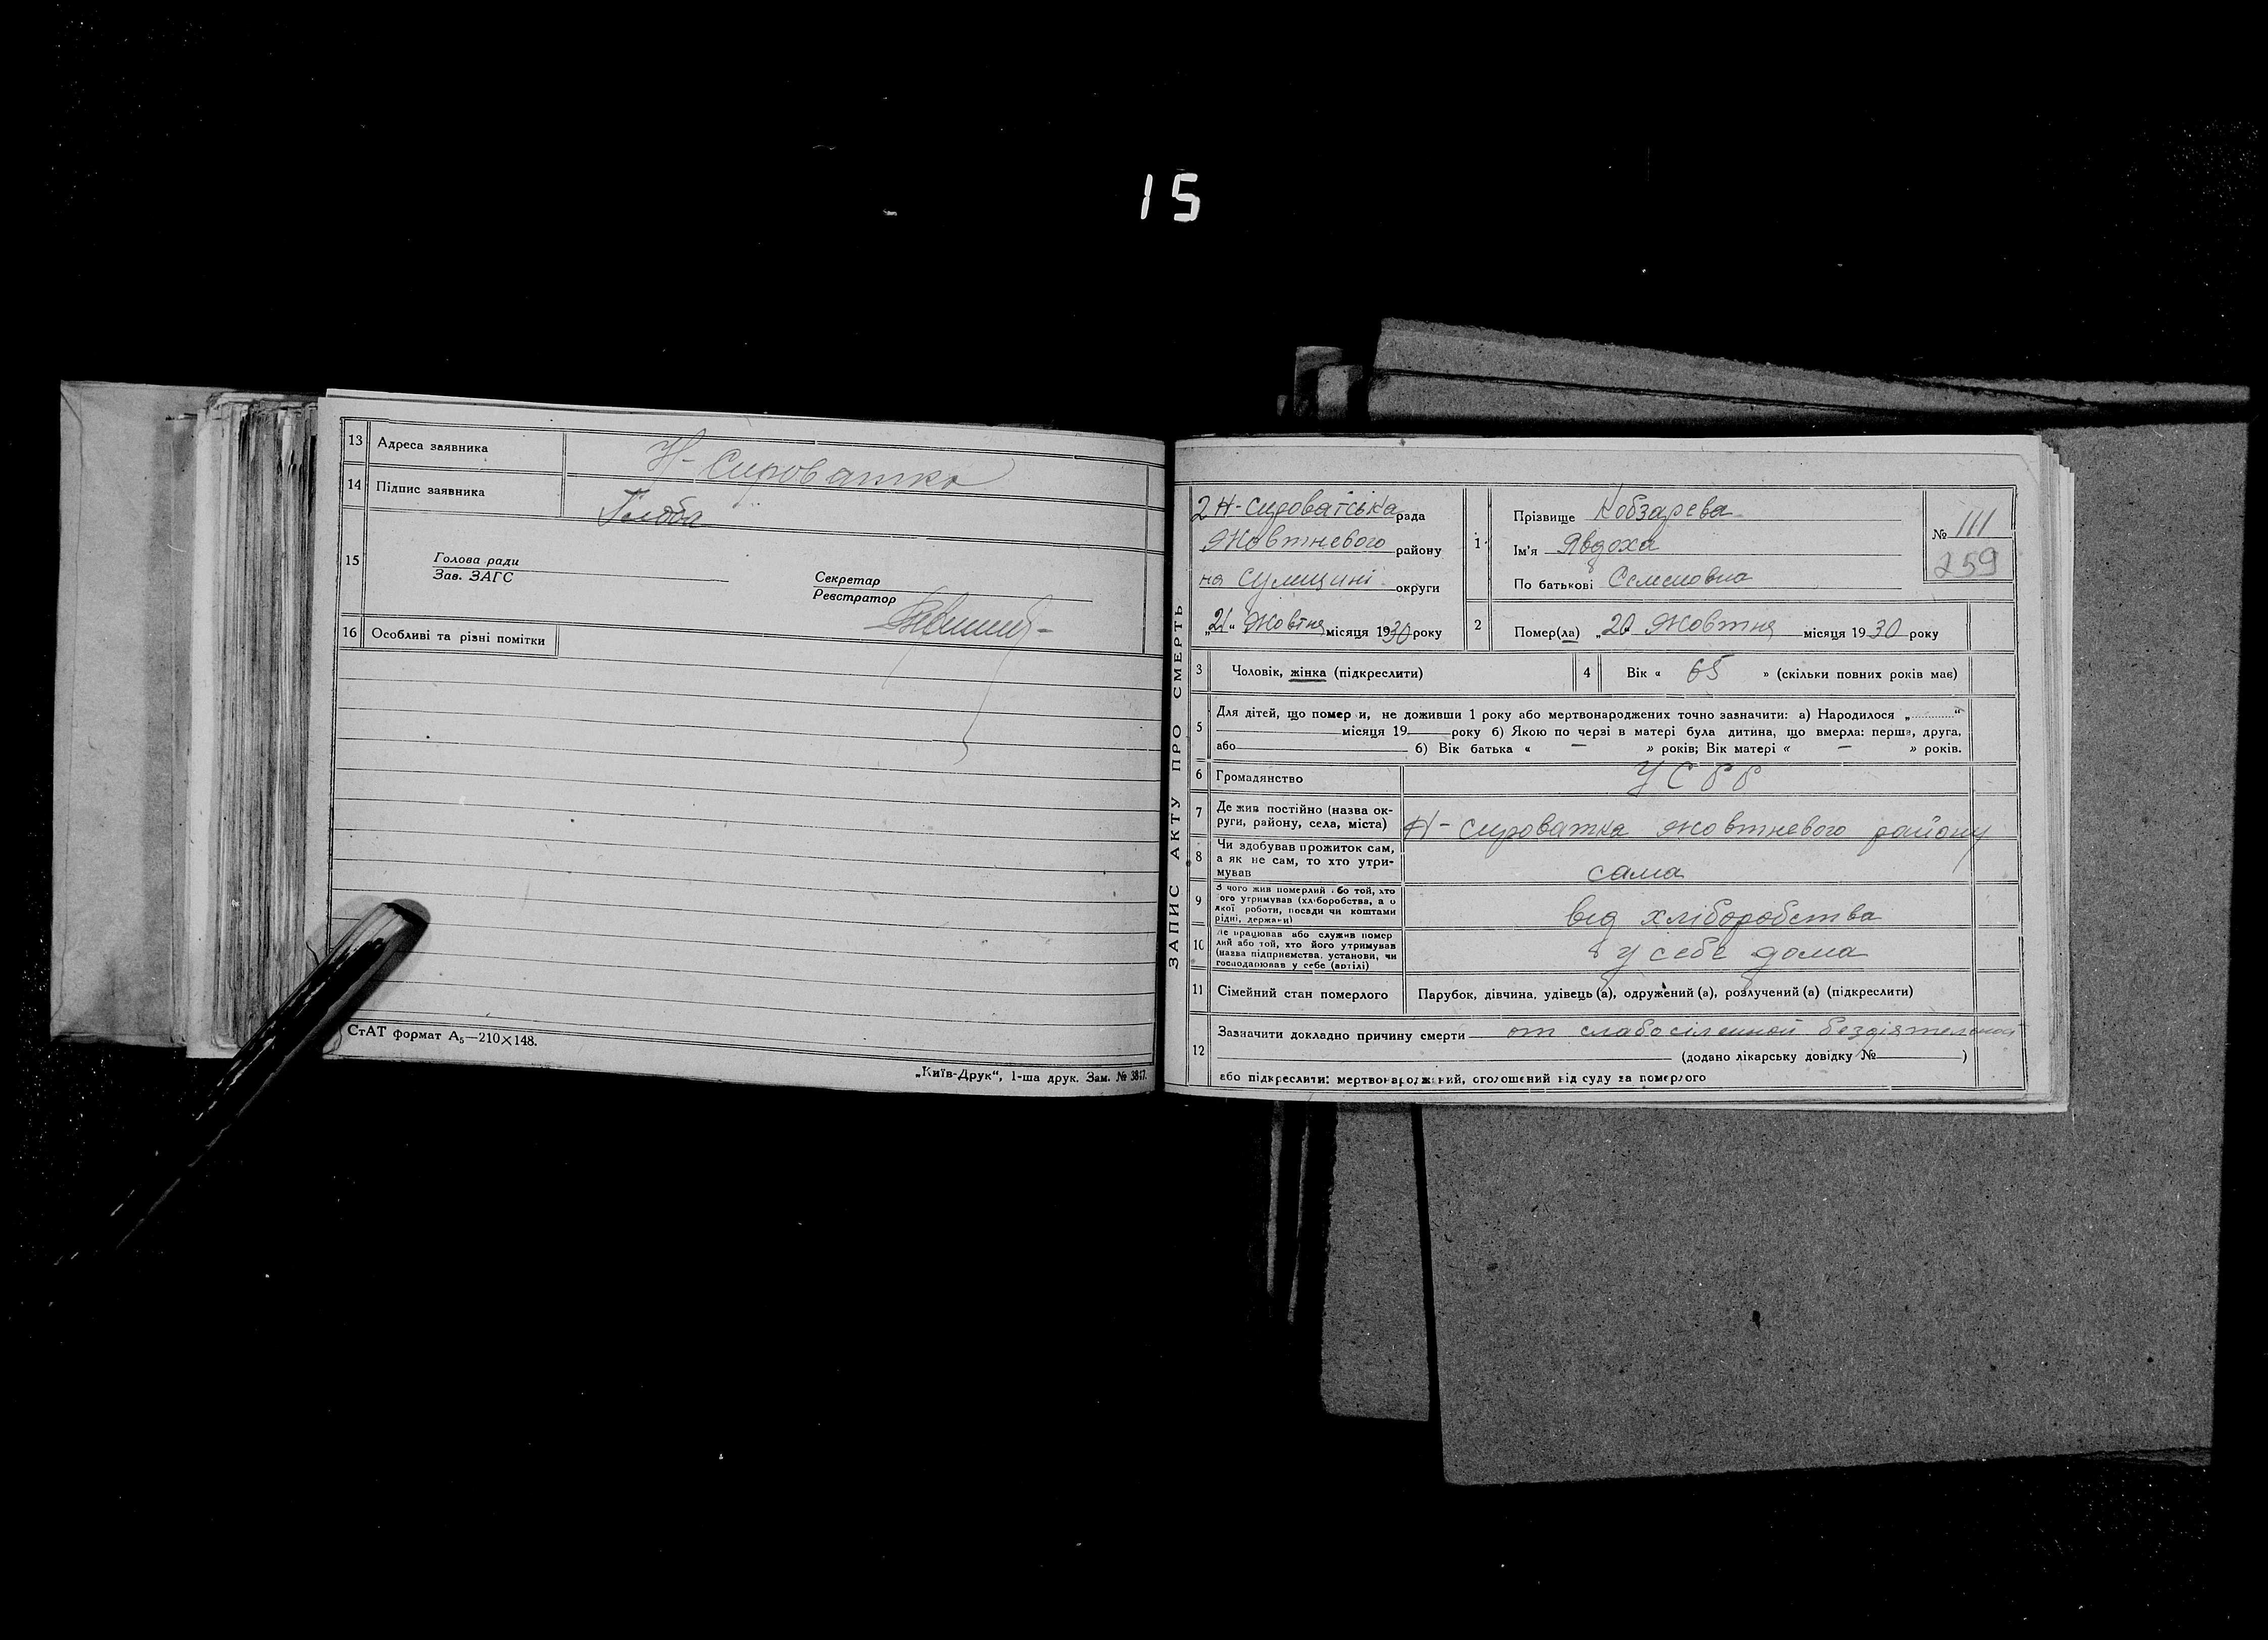 15
13 Адреса заявника Н-Сироватка
14 Підпис заявника Глоба
15 Голова ради
Зав. ЗАГС
Секретар
Реєстратор
16 Особливі та різні помітки
СтАТ формат А₅—210×148.
„Київ-Друк“, 1-ша друк. Зам. № 3847.
ЗАПИС АКТУ ПРО СМЕРТЬ
2 Н-Сироватська рада
Жовтневого району
на Сумщині округи
„21“ Жовтня місяця 1930 року
1 Прізвище Кобзарева
Ім'я Явдоха
По батькові Семеновна
№ 111
259
2 Помер(ла) „20 Жовтня місяця 1930 року
3 Чоловік, жінка (підкреслити)
4 Вік « 65 » (скільки повних років має)
5 Для дітей, що помер и, не доживши 1 року або мертвонароджених точно зазначити: а) Народилося „............“
місяця 19 року б) Якою по черзі в матері була дитина, що вмерла: перша, друга,
або б) Вік батька « — » років; Вік матері « — » років.
6 Громадянство УСРР
7 Де жив постійно (назва ок-
руги, району, села, міста) Н-Сироватка Жовтневого району
8 Чи здобував прожиток сам,
а як не сам, то хто утри-
мував сама
9 З чого жив померлий або той, хто
ого утримував (хліборобства, а о
якої роботи, посади чи коштами
рідні, держави) від хліборобства
10 Де працював або служив помер
лий або той, хто його утримував
(назва підприємства, установи, чи
господарював у себе (артілі) у себе дома
11 Сімейний стан померлого Парубок, дівчина, удівець (а), одружений (а), розлучений (а) (підкреслити)
12 Зазначити докладно причину смерти от слабосіленной
(додано лікарську довідку № )
або підкреслити: мертвонароджений, оголошений від суду за померлого